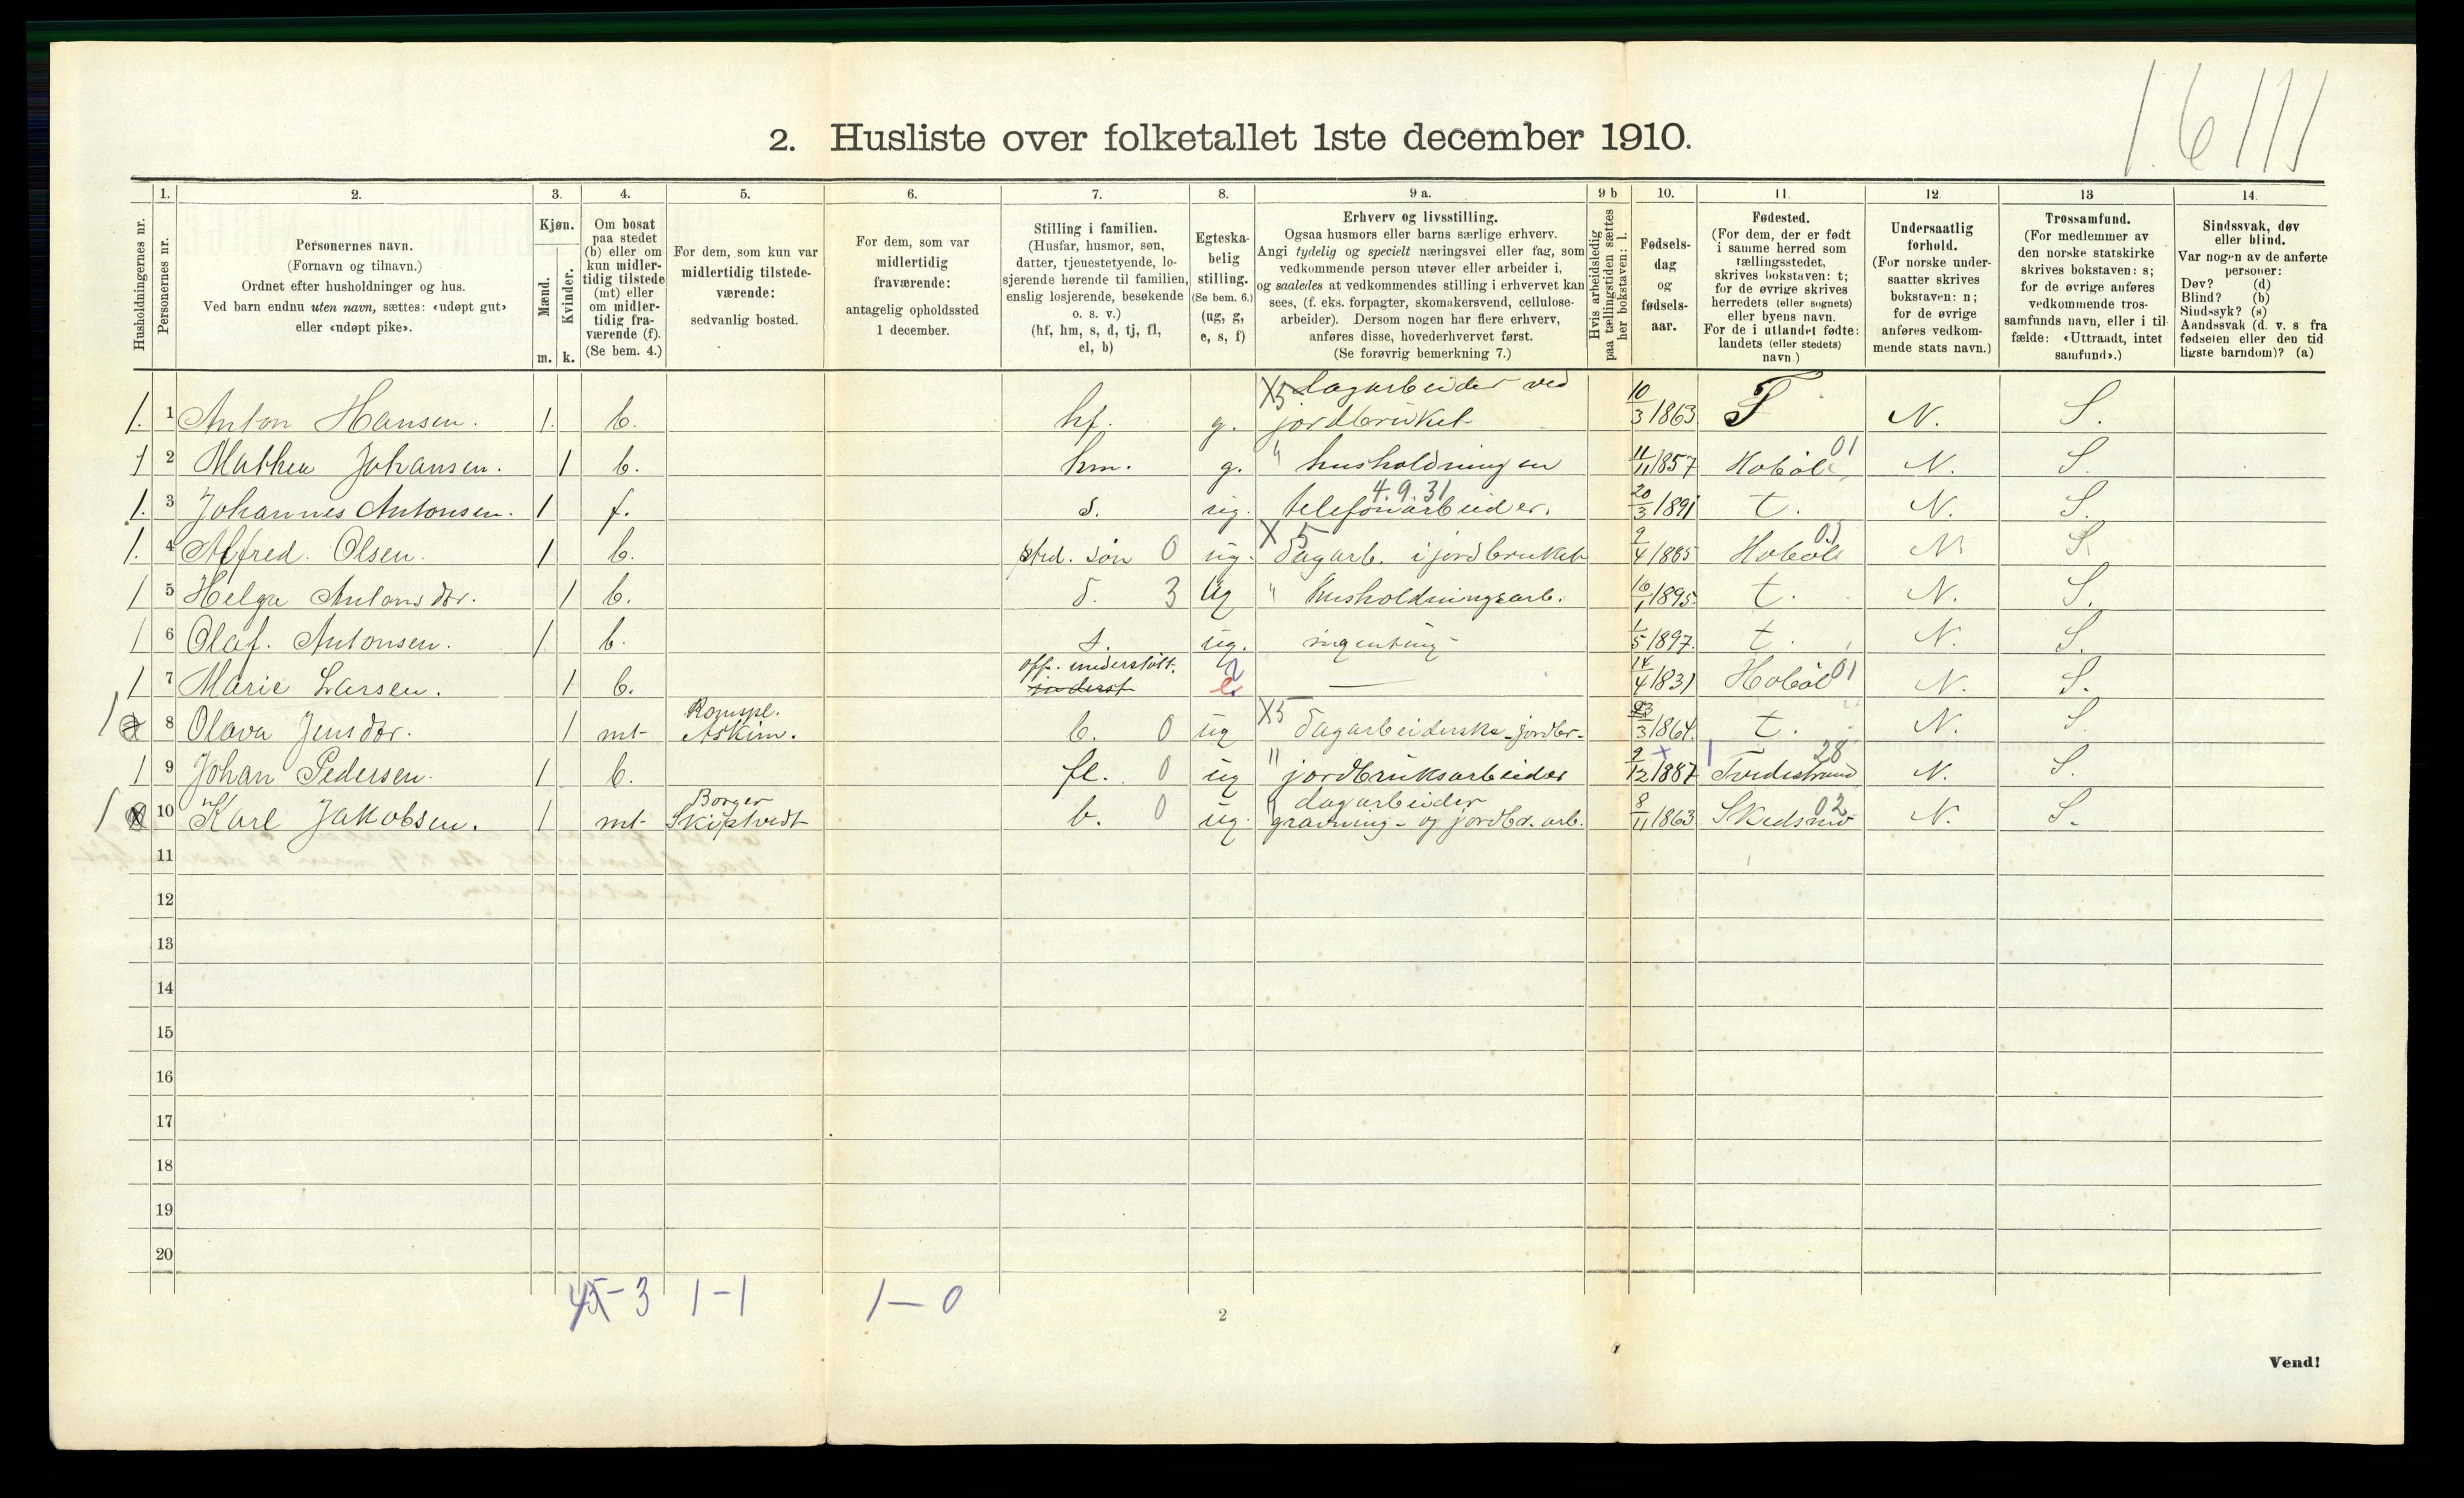 1.6111
2. Husliste over folketallet 1ste december 1910.
Husholdningernes nr.
1. Personernes nr.
2. Personernes navn.
(Fornavn og tilnavn.)
Ordnet efter husholdninger og hus.
Ved barn endnu uten navn, sættes: «udøpt gut»
eller «udøpt pike».
3. Kjøn.
Mænd. m.
Kvinder. k.
4. Om bosat
paa stedet
(b) eller om
kun midler-
tidig tilstede
(mt) eller
om midler-
tidig fra-
værende (f).
(Se bem. 4.)
5. For dem, som kun var
midlertidig tilstede-
værende:
sedvanlig bosted.
6. For dem, som var
midlertidig
fraværende:
antagelig opholdssted
1 december.
7. Stilling i familien.
(Husfar, husmor, søn,
datter, tjenestetyende, lo-
sjerende hørende til familien,
enslig losjerende, besøkende
o. s. v.)
(hf, hm, s, d, tj, fl,
el, b)
8. Egteska-
belig
stilling.
(Se bem. 6.)
(ug, g,
e, s, f)
9 a. Erhverv og livsstilling.
Ogsaa husmors eller barns særlige erhverv.
Angi tydelig og specielt næringsvei eller fag, som
vedkommende person utøver eller arbeider i,
og saaledes at vedkommendes stilling i erhvervet kan
sees, (f. eks. forpagter, skomakersvend, cellulose-
arbeider). Dersom nogen har flere erhverv,
anføres disse, hovederhvervet først.
(Se forøvrig bemerkning 7.)
9 b Hvis arbeidsledig
paa tællingstiden sættes
her bokstaven: l.
10. Fødsels-
dag
og
fødsels-
aar.
11. Fødested.
(For dem, der er født
i samme herred som
tællingsstedet,
skrives bokstaven: t;
for de øvrige skrives
herredets (eller sognets)
eller byens navn.
For de i utlandet fødte:
landets (eller stedets)
navn.)
12. Undersaatlig
forhold.
(For norske under-
saatter skrives
bokstaven: n;
for de øvrige
anføres vedkom-
mende stats navn.)
13 Trossamfund.
(For medlemmer av
den norske statskirke
skrives bokstaven: s;
for de øvrige anføres
vedkommende tros-
samfunds navn, eller i til-
fælde: «Uttraadt, intet
samfund».)
14. Sindssvak, døv
eller blind.
Var nogen av de anførte
personer:
Døv? (d)
Blind? (b)
Sindssyk? (s)
Aandssvak (d. v. s fra
fødselen eller den tid
ligste barndom)? (a)
1. 1 Anton Hansen. 1. b. hf. g. X5 Dagarbeider ved jordbruket 10/3 1863 T N. S.
1 2 Mathea Johansen. 1 b. hm. g. " husholdningen 11/11 1857 Hobøl 01 N. S.
1. 3 Johannes Antonsen. 1 f. s. ug. telefonarbeider. 4.9.31 20/3 1891 t. N. S.
1. 4 Alfred. Olsen. 1 b. søn 0 ug. X 5 Dagarb. i jordbruket 9/4 1885 Hobøl 01 N S
1 5 Helga Antonsdtr. 1 b. d. 3 ug " husholdningsarb. 10/1 1895. t. N. S.
1 6 Olaf. Antonsen. 1 b. s. ug. ingenting - 1/5 1897. t. N. S.
1 7 Marie Larsen. 1 b. off. understøtt. e. — 14/4 1831 Hobøl 01 N. S.
1 8 Olava Jensdtr. 1 mt Romspl. Askim. b. 0 ug X5 Dagarbeiderske - jordbr- 3 1864. t. N. S.
1 9 Johan Pedersen. 1 b. fl. 0 ug " jordbruksarbeider 9/12 1887 Tvedestrand 28 N. S.
1 10 Karl Jakobsen. 1 mt Borger Skiptvedt b. 0 ug. " dagarbeider gravning- og jordbr. arb. 8/11 1863 Skedsmo 02 N. S.
11
12
13
14
15
16
17
18
19
20
4 - 3 1 - 1 1 — 0
2
Vend!